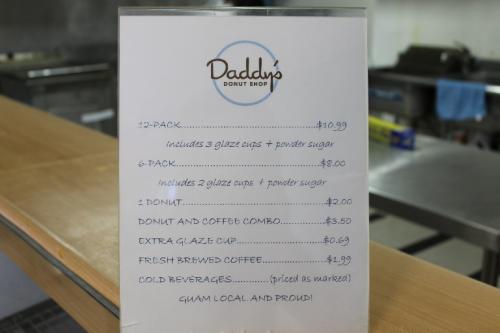 Daddy's
DONUT SHOP
12-PACK..............................$10.99
Includes 3 glaze cups + powder sugar
6-PACK...............................$8.00
Includes 2 glaze cups + powder sugar
1 DONUT..............................$2.00
DONUT AND COFFEE COMBO..........$3.50
EXTRA GLAZE CUP...................$0.69
FRESH BREWED COFFEE.............$1.99
COLD BEVERAGES............(priced as marked)
GUAM LOCAL AND PROUD!